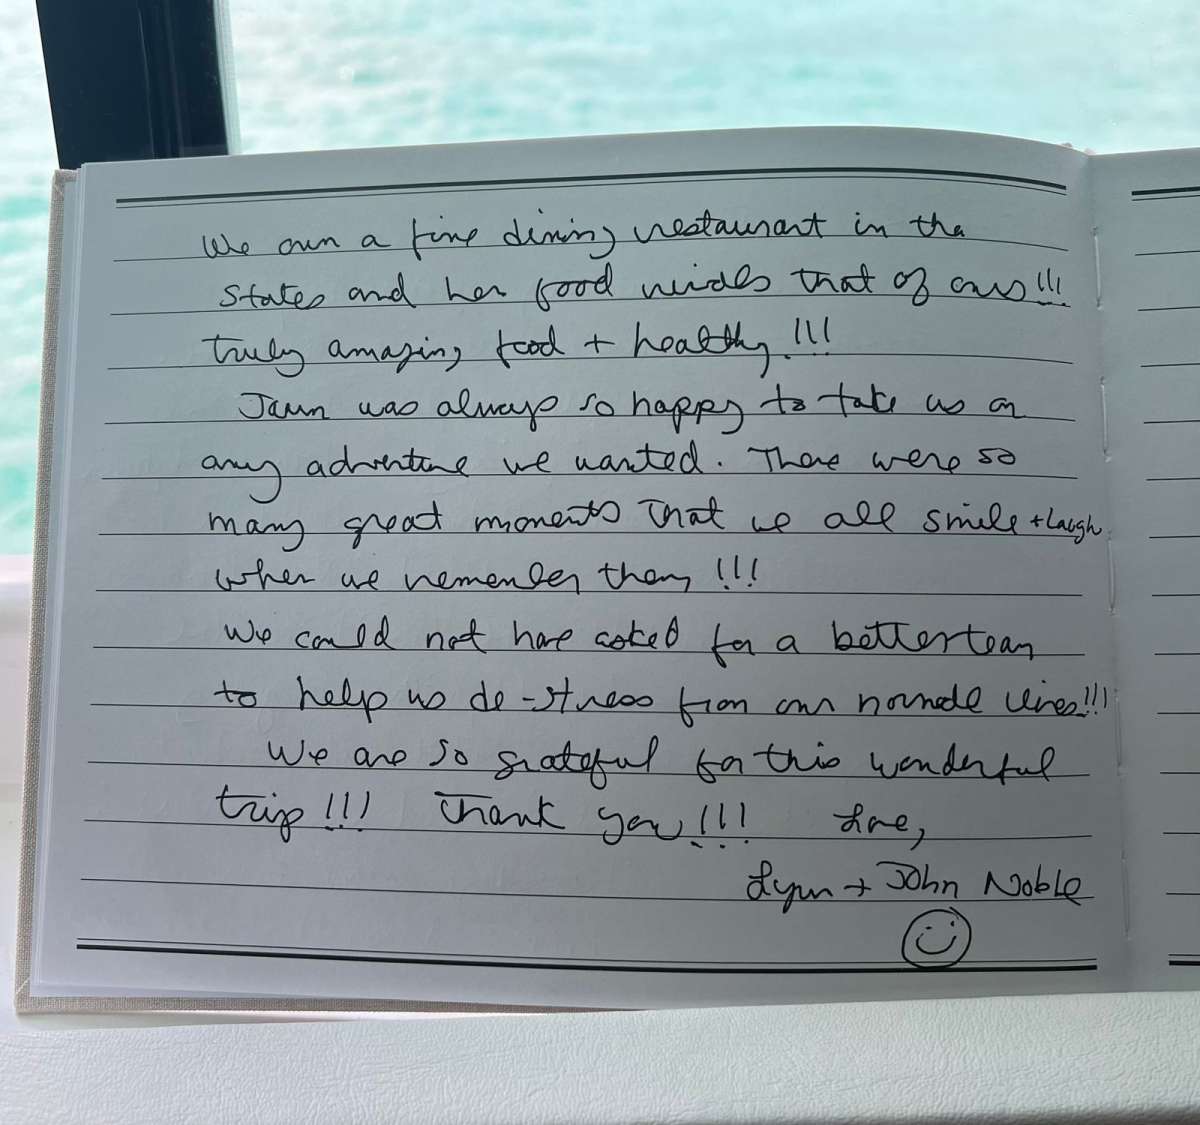 We own a fine dining restaurant in the
States and her food rivals that of ours!!!
truly amazing food + healthy!!!
Jaun was always so happy to take us on
any adventure we wanted. There were so
many great moments that we all smile + laugh
when we remember them!!!
We could not have asked for a better team
to help us de-stress from our normal lives!!!
We are so grateful for this wonderful
trip!!! Thank you!!! Love,
Lynn + John Noble